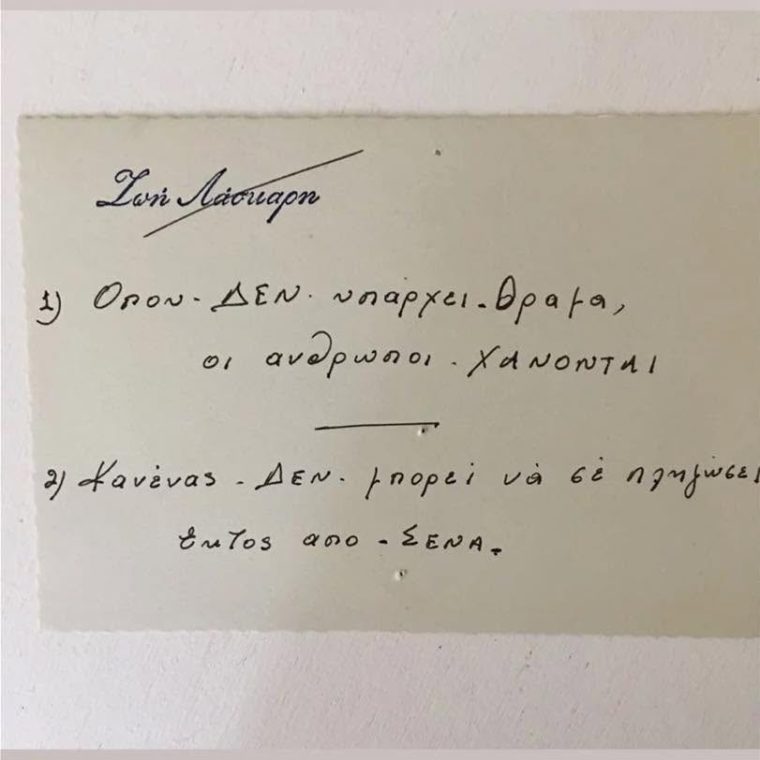 Ζωή Λάσκαρη
1) Οπου - ΔΕΝ - υπάρχει - Οραμα,
οι ανθρωποι - ΧΑΝΟΝΤΑΙ
2) Κανένας - ΔΕΝ - μπορεί νὰ σὲ πληγώσει
Εκτος απο - ΣΕΝΑ.